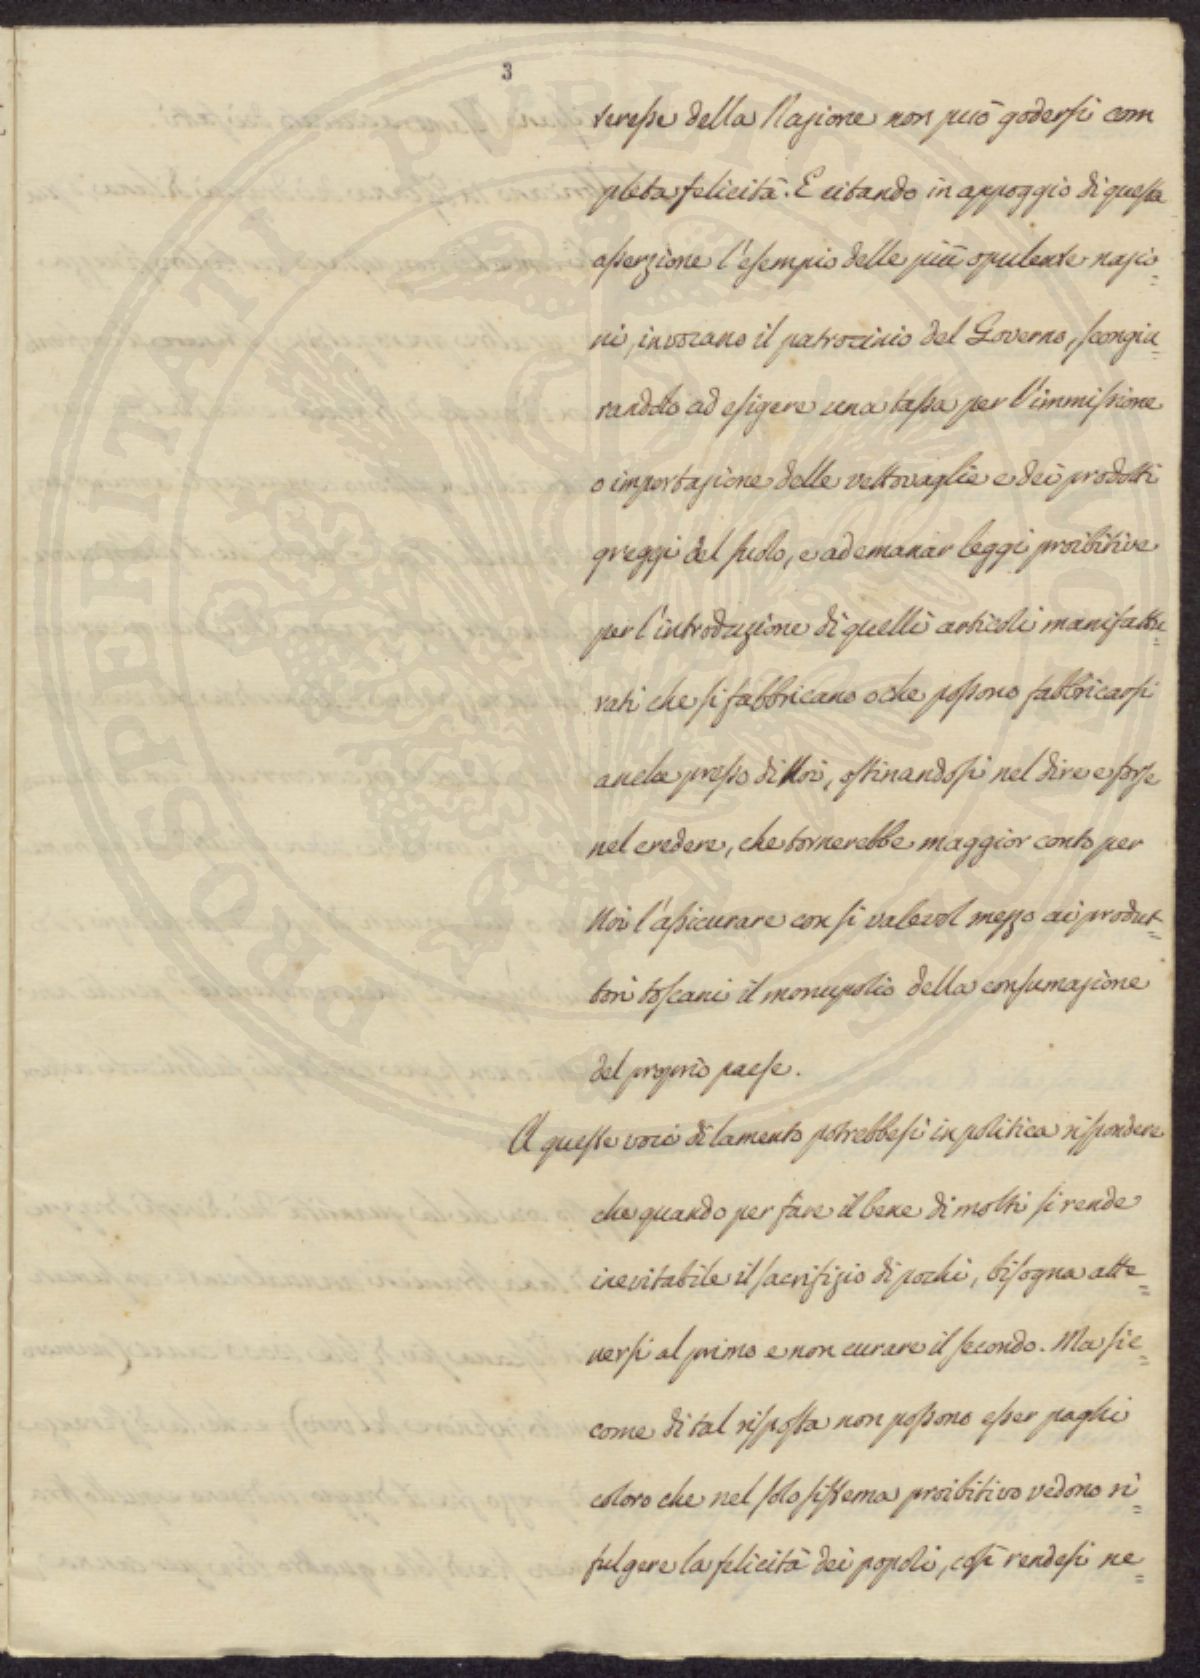 3
teresse della Nazione non può godersi com
pleta felicità. E citando in appoggio di questa
asserzione l'esempio delle più opulente nazio=
ni, invocano il patrocinio del Governo, scongiu=
randolo ad esigere una tassa per l'immissione
o importazione delle vettovaglie e dei prodotti
greggi del suolo, e ad emanar leggi proibitive
per l'introduzione di quelli articoli manifattu=
rati che si fabbricano o che possono fabbricarsi
anche presso di Noi, ostinandosi nel dire e forse
nel credere, che tornerebbe maggior conto per
Noi l'assicurare con sì valevol mezzo ai produt=
tori toscani il monopolio della consumazione
del proprio paese.
A queste voci di lamento potrebbesi in politica rispondere
che quando per fare il bene di molti si rende
inevitabile il sacrifizio di pochi, bisogna atte=
nersi al primo e non curare il secondo. Ma sic=
come di tal risposta non possono esser paghi
coloro che nel solo sistema proibitivo vedono ri=
fulgere la felicità dei popoli, così rendesi ne=
PROSPERITATI PVBLICAE